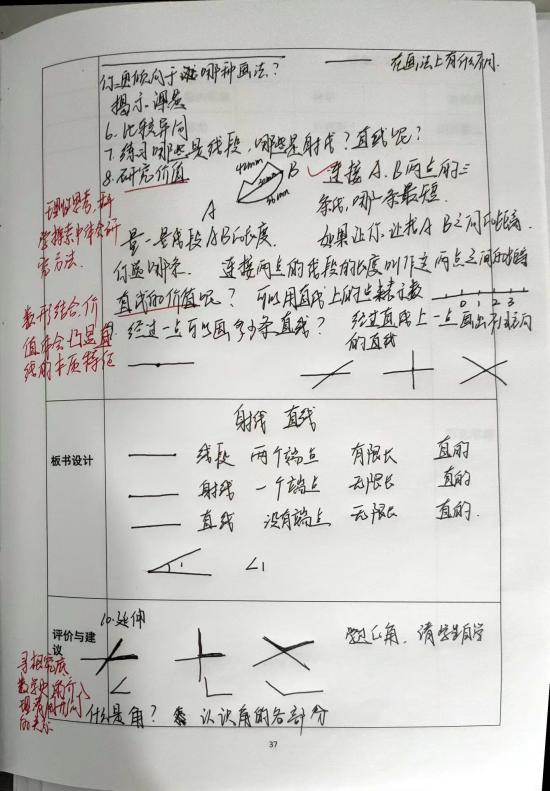 你更倾向于哪种画法？
在画法上有什么不同.
揭示课题
6. 比较异同
7. 练习哪些是线段，哪些是射线？直线呢？
8. 研究价值
42mm
36mm
A
B
连接A、B两点的三
条线，哪一条最短.
量一量线段AB的长度.
如果让你让找AB之间的距离
你选哪条.
连接两点的线段的长度叫作这两点之间的距离
直线的价值呢？
可以用直线上的点来表示数
0 1 2 3
经过一点可以画多少条直线？
经过直线上一点画出不同方向
的直线
数形结合，价
值体会凸显直
线的本质特征
板书设计
射线 直线
线段 两个端点 有限长 直的
射线 一个端点 无限长 直的
直线 没有端点 无限长 直的.
1
∠1
评价与建
议
10.延伸
角，请学生自学
什么是角？
认识角的各部分
37